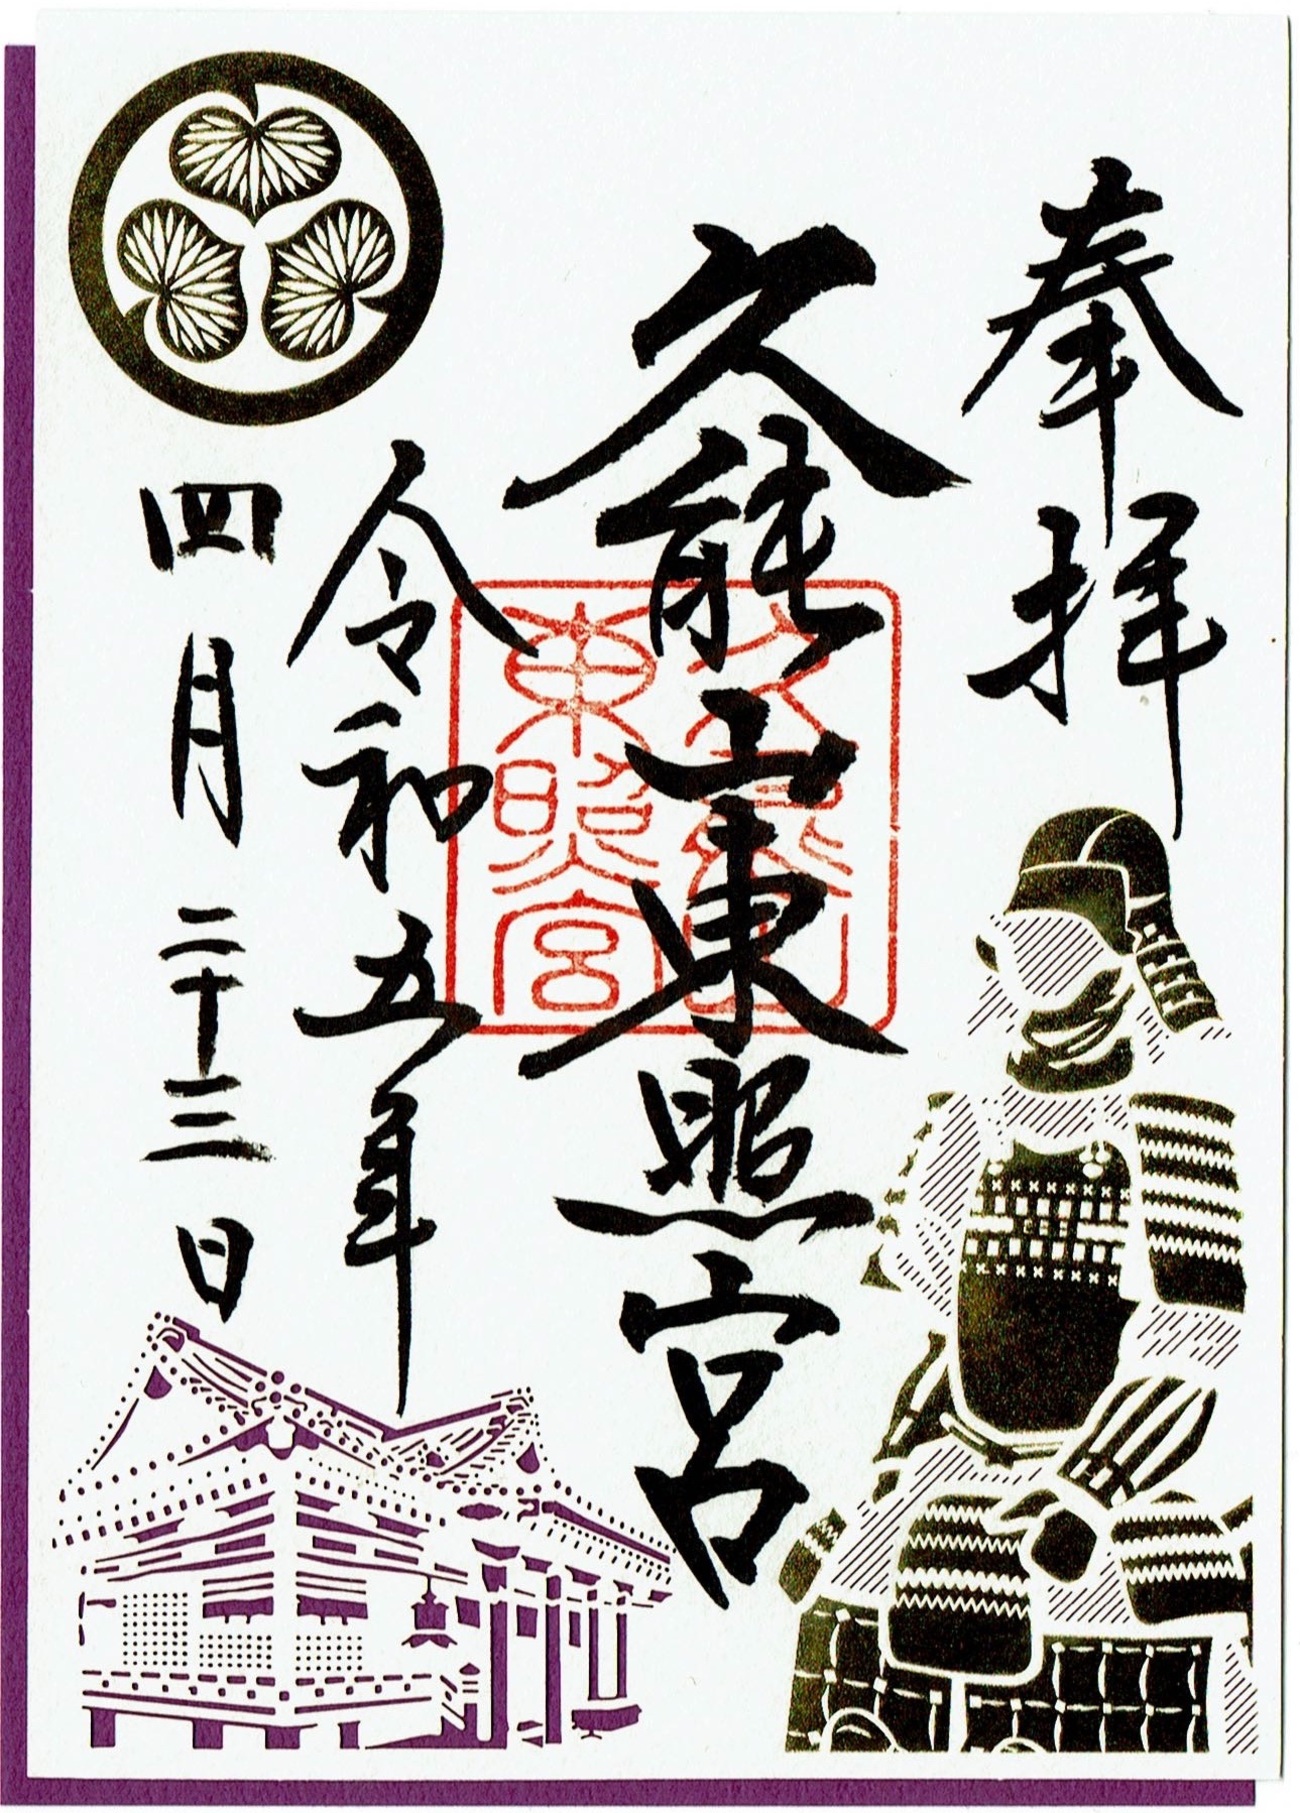 奉拝
久能山東照宮
令和五年
四月二十三日
久能山
東照宮